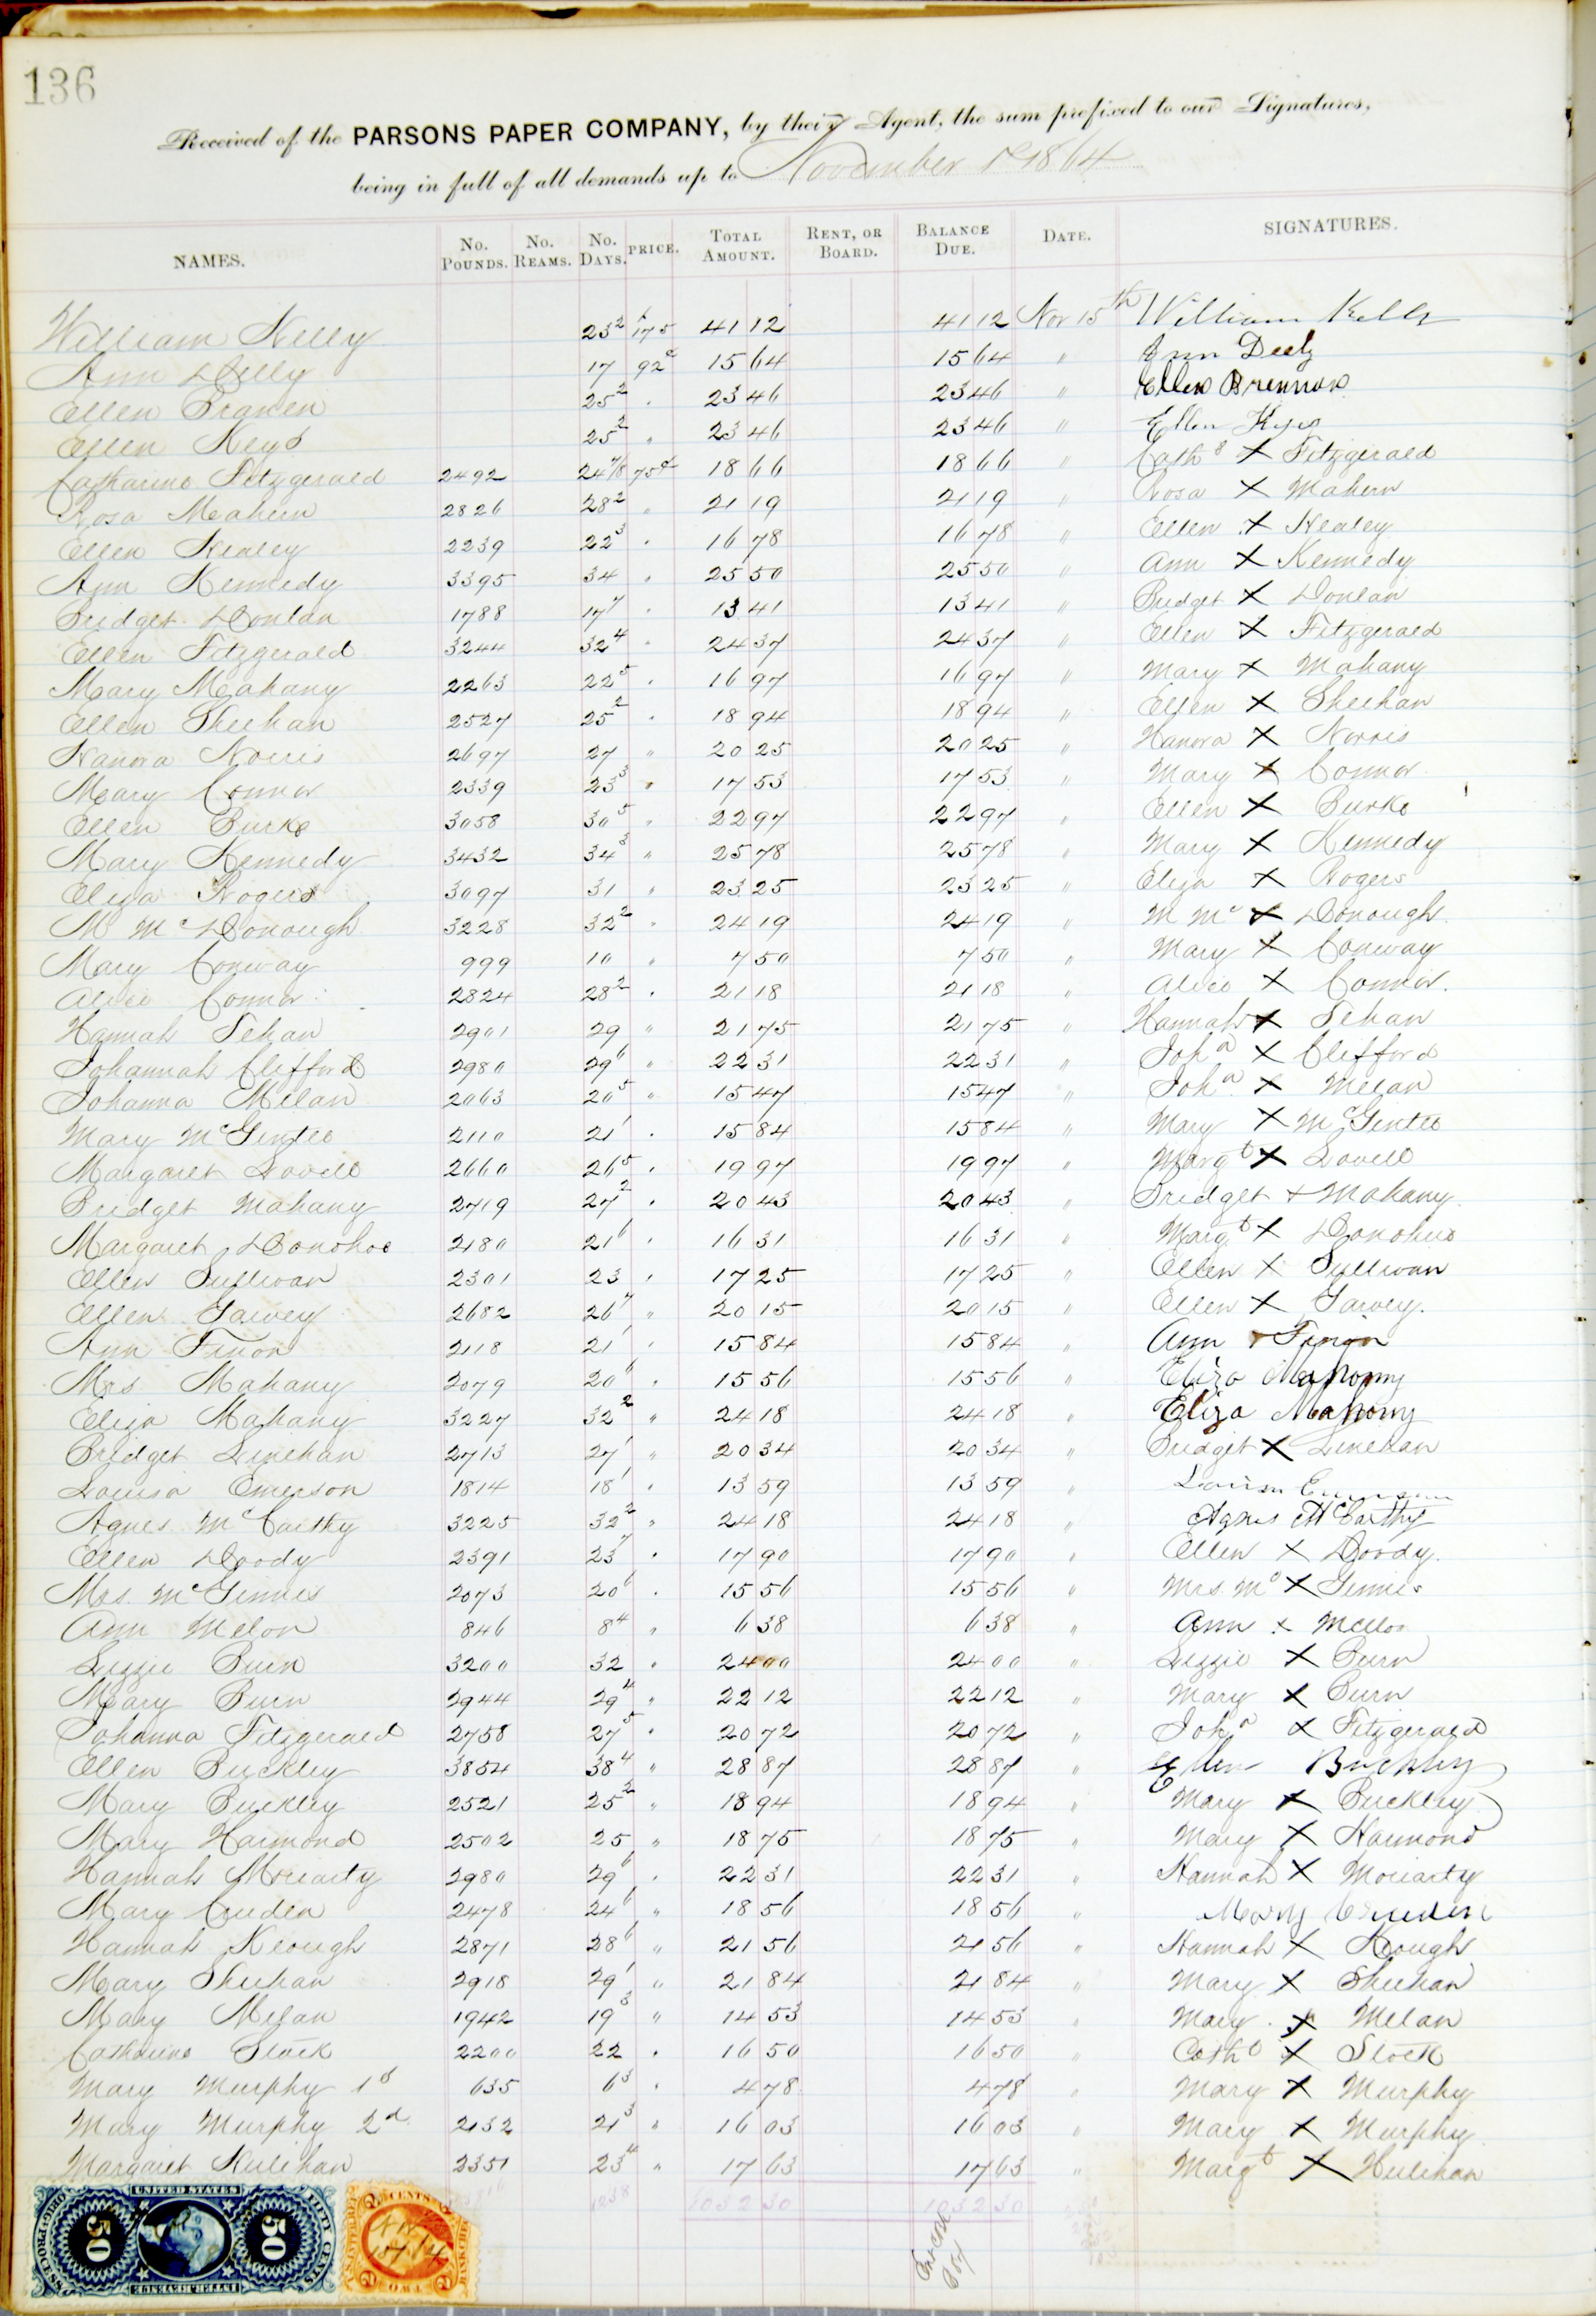 136
Received of the PARSONS PAPER COMPANY, by their Agent, the sum prefixed to our Signatures,
being in full of all demands up to November 1st 1864
NAMES. No. POUNDS. No. REAMS. No. DAYS. PRICE. TOTAL AMOUNT. RENT, OR BOARD. BALANCE DUE. DATE. SIGNATURES.
William Kelly 23 2 175 41 12 41 12 Nov 15th William Kelly
Ann Dilly 17 92c 15 64 15 64 " Ann Deely
Ellen Branen 25 2 " 23 46 23 46 " Ellen Brennan
Ellen Keys 25 2 " 23 46 23 46 " Ellen Kyes
Catharine Fitzgerald 2492 24 7/8 75c 18 66 18 66 " Cathe X Fitzgerald
Rosa Mahern 2826 28 2 " 21 19 21 19 " Rosa X Mahern
Ellen Healey 2239 22 3 " 16 78 16 78 " Ellen X Healey
Ann Kennedy 3395 34 " 25 50 25 50 " Ann X Kennedy
Bridget Donlan 1788 17 7 " 13 41 13 41 " Bridget X Donlan
Ellen Fitzgerald 3244 32 4 " 24 37 24 37 " Ellen X Fitzgerald
Mary Mahany 2263 22 5 " 16 97 16 97 " Mary X Mahany
Ellen Sheehan 2527 25 2 " 18 94 18 94 " Ellen X Sheehan
Hanora Norris 2697 27 " 20 25 20 25 " Hanora X Norris
Mary Connor 2339 23 3 " 17 53 17 53 " Mary X Connor
Ellen Burke 3058 30 5 " 22 97 22 97 " Ellen X Burke
Mary Kennedy 3432 34 3 " 25 78 25 78 " Mary X Kennedy
Eliza Rogers 3097 31 " 23 25 23 25 " Eliza X Rogers
M McDonough 3228 32 2 " 24 19 24 19 " M Mc X Donough
Mary Conway 999 10 " 7 50 7 50 " Mary X Conway
Alice Connor 2824 28 2 " 21 18 21 18 " Alice X Connor.
Hannah Sehan 2901 29 " 21 75 21 75 " Hannah X Sehan
Johannah Clifford 2980 29 6 " 22 31 22 31 " Joha X Clifford
Johanna Milan 2063 20 5 " 15 47 15 47 " Joha X Melan
Mary McGintee 2110 21 1 " 15 84 15 84 " Mary X McGintee
Margaret Lovele 2660 26 5 " 19 97 19 97 " Margt X Lovele
Bridget Mahany 2719 27 2 " 20 43 20 43 " Bridget X Mahany
Margaret Donohoe 2180 21 6 " 16 31 16 31 " Margt X Donohue
Ellen Sullivan 2301 23 " 17 25 17 25 " Ellen X Sullivan
Ellen Garvey 2682 26 7 " 20 15 20 15 " Ellen X Garvey.
Ann Finon 2118 21 1 " 15 84 15 84 " Ann X Finon
Mrs Mahany 2079 20 6 " 15 56 15 56 " Eliza Mahony
Eliza Mahany 3227 32 2 " 24 18 24 18 " Eliza Mahony
Bridget Linehan 2713 27 1 " 20 34 20 34 " Bridget X Linehan
Louisa Emerson 1814 18 1 " 13 59 13 59 " Louisa Emerson
Agnes McCarthy 3225 32 2 " 24 18 24 18 " Agnes McCarthy
Ellen Doody 2391 23 7 " 17 90 17 90 " Ellen X Doody.
Mrs. McGinnis 2073 20 6 " 15 56 15 56 " Mrs. Mc X Ginnis
Ann Melon 846 8 4 " 6 38 6 38 " Ann X Mellon
Lizzie Burn 3200 32 " 24 00 24 00 " Lizzie X Burn
Mary Burn 2944 29 4 " 22 12 22 12 " Mary X Burn
Johanna Fitzgerald 2758 27 5 " 20 72 20 72 " Joha X Fitzgerald
Ellen Buckley 3854 38 4 " 28 87 28 87 " Ellen Buckley
Mary Buckley 2521 25 2 " 18 94 18 94 " Mary X Buckley
Mary Harmond 2502 25 " 18 75 18 75 " Mary X Harmond
Hannah Moriarty 2980 29 6 " 22 31 22 31 " Hannah X Moriarty
Mary Cruden 2478 24 6 " 18 56 18 56 " Mary Cruden
Hannah Keough 2871 28 6 " 21 56 21 56 " Hannah X Keough
Mary Sheehan 2918 29 1 " 21 84 21 84 " Mary X Sheehan
Mary Melan 1942 19 3 " 14 53 14 53 " Mary X Melan
Catharine Stock 2200 22 " 16 50 16 50 " Cathe X Stock
Mary Murphy 1st 635 6 3 " 4 78 4 78 " Mary X Murphy
Mary Murphy 2d 2132 21 3 " 16 03 16 03 " Mary X Murphy
Margaret Hulihan 2351 23 4 " 17 63 17 63 " Margt X Hulihan
1032 30 1032 30
UNITED STATES
50 50
INTER.REVENUE
FIFTY CENTS
2 CENTS
TWO